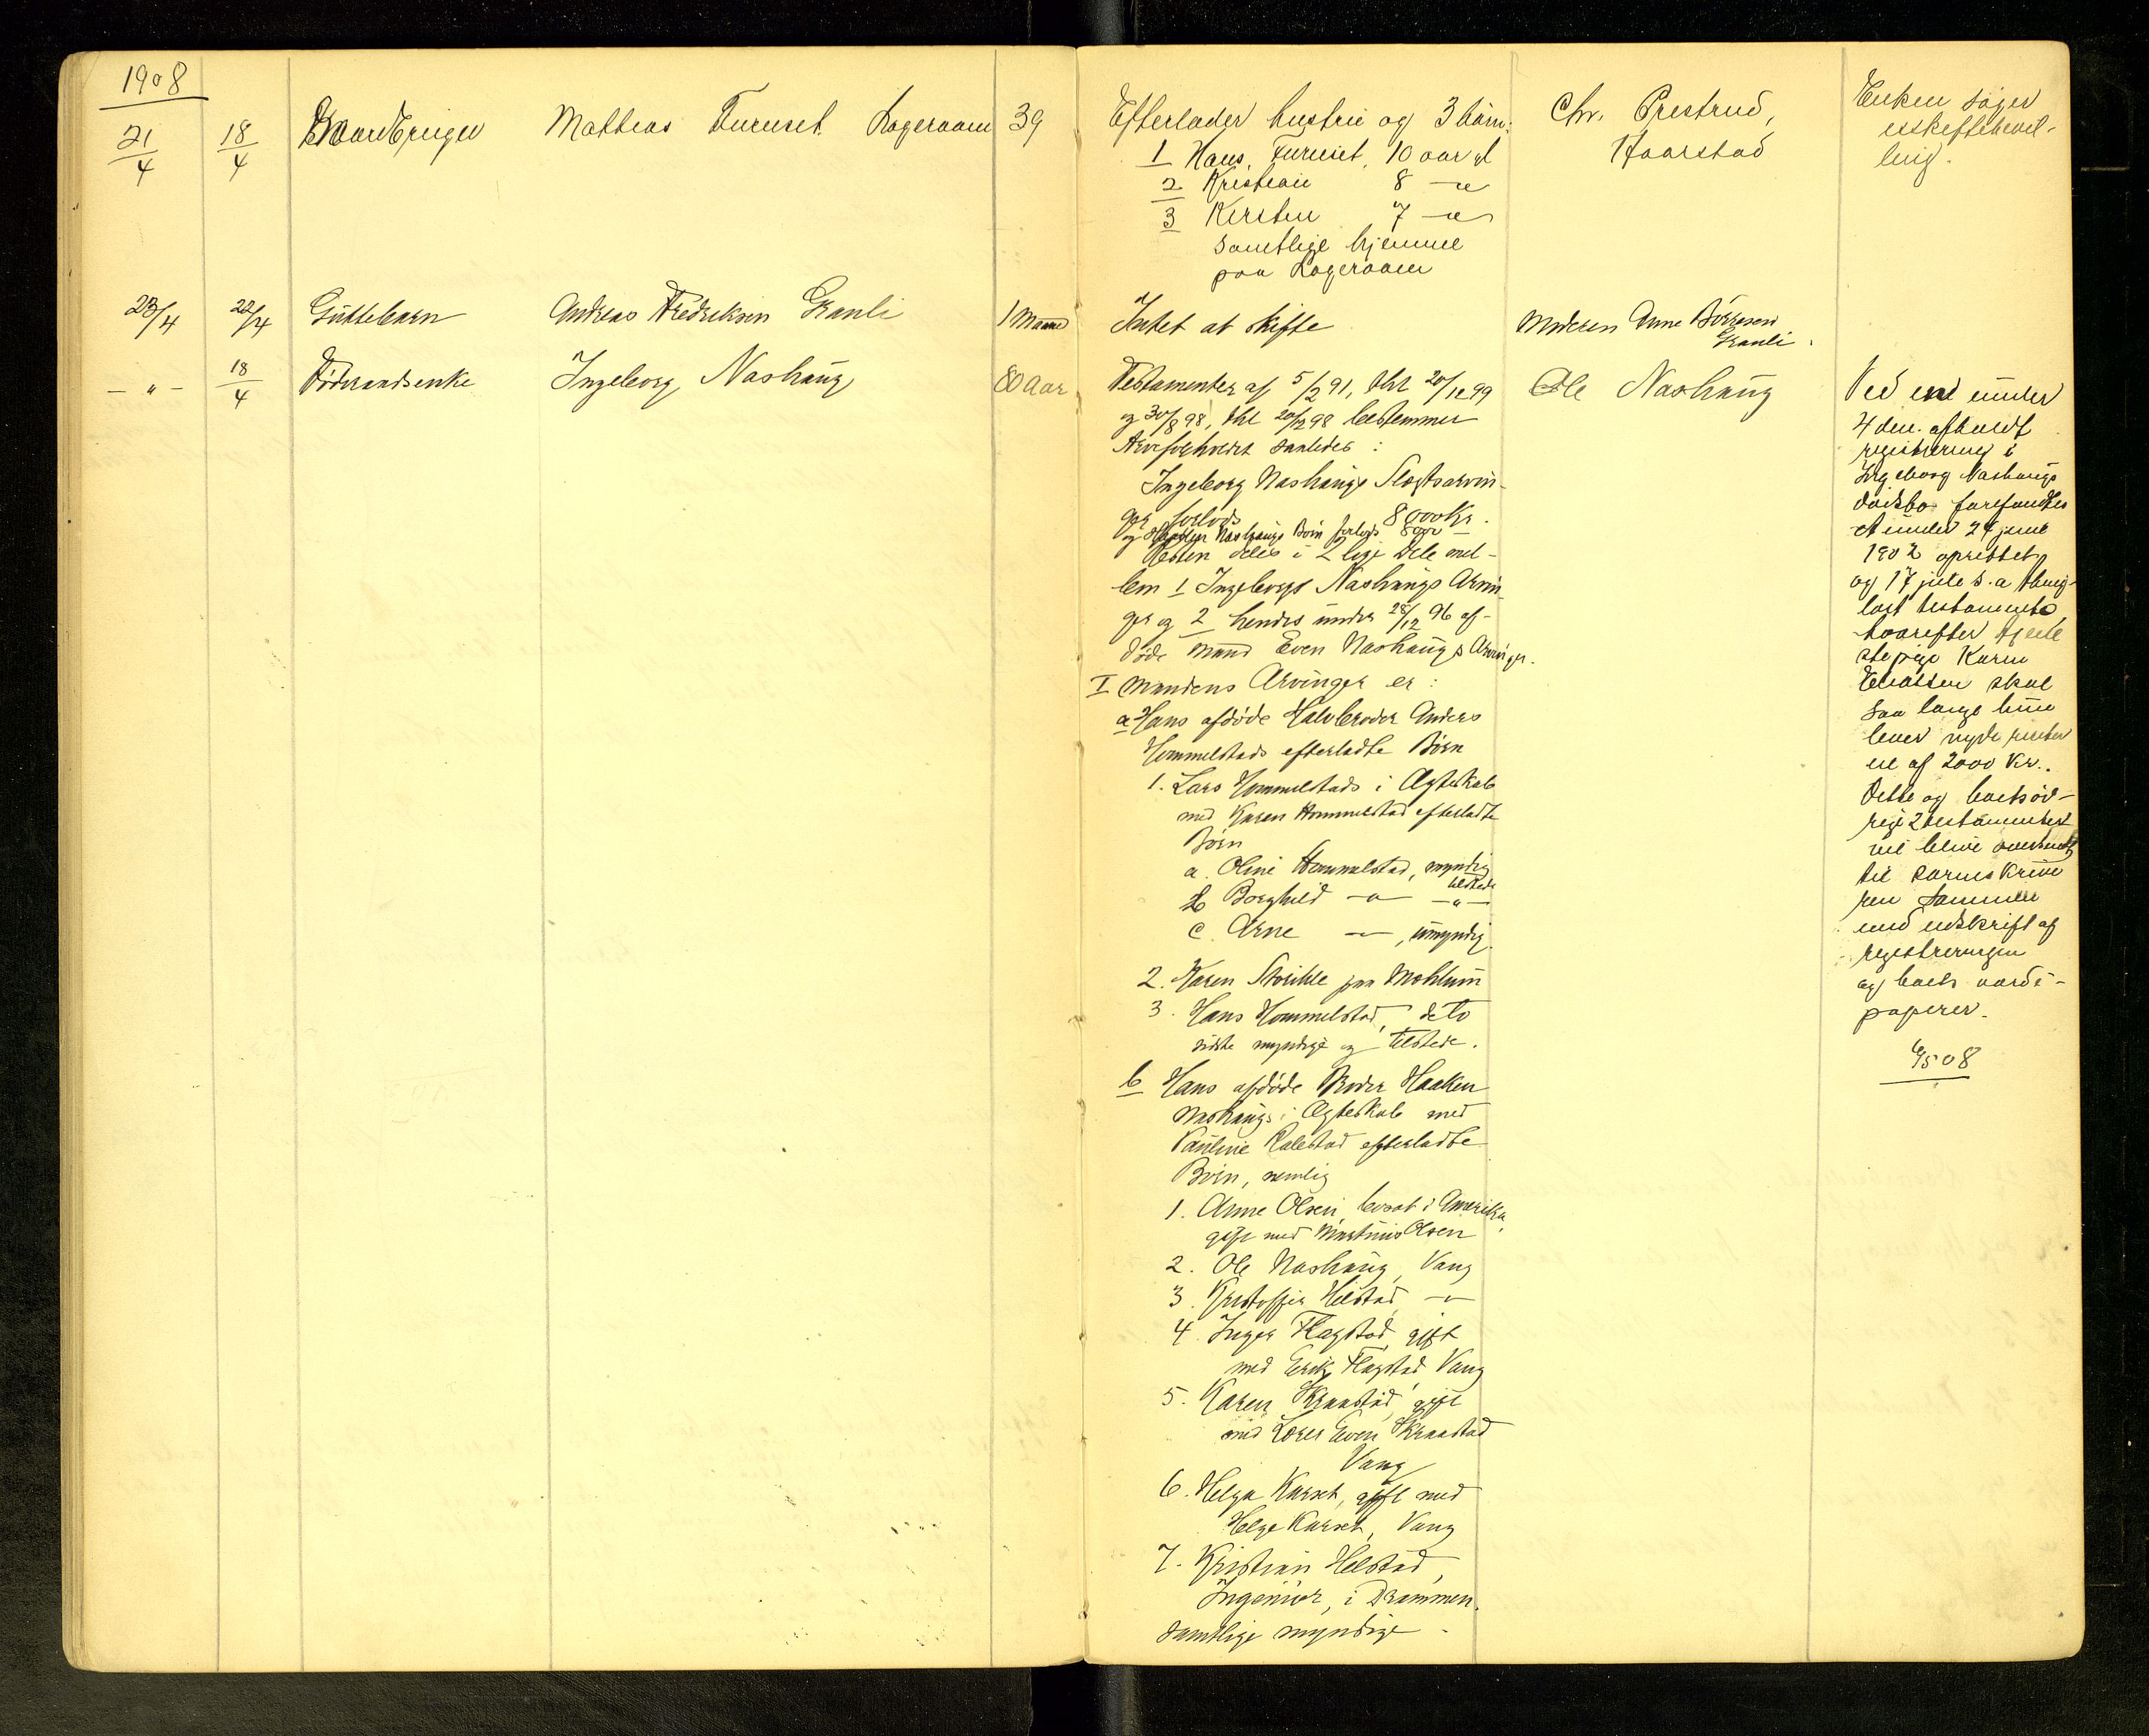 1908
21/4 18/4 Gaardbruger Mathias Furuset Lageraaen 39
Efterlader hustru og 3 børn:
1 Hans Furuset, 10 aar gl
2 Kristian 8 —"—
3 Kirsten 7 —"—
samtlige hjemme
paa Lageraaen
Chr. Prestrud,
Haarstad
Enken søger
uskiftebevil-
ling.
23/4 22/4 Guttebarn Andreas Fredriksen Granli 1 Maaned
Intet at skifte
Moderen Anne Børresen
Granli.
— " — 18/4 Føderaadsenke Ingeborg Nashaug 80 aar
Testamenter af 5/2 91, thl 20/12 99
og 30/8 98, thl 20/12 98 bestemmer
Arveforholdet saaledes:
Ingeborg Nashaugs Slægtsarvin-
ger forlods 8000 Kr.
og Haaken Nashaugs Børn forlods 8000 —
Resten deles i 2 lige Dele mel-
lem 1 Ingeborgs Nashaugs Arvin-
ger og 2 hendes under 28/12 96 af-
døde Mand Even Nashaugs Arvinger.
I Mandens Arvinger er:
a Hans afdøde Halvbroder Anders
Hommelstads efterladte Børn
1. Lars Hommelstads i Ægteskab
med Karen Hommelstad efterladte
Børn
a. Oline Hommelstad, myndig
tilstede
b Borghild —"— —"—
c. Arne —"—, umyndig
2. Karen Storihle paa Mohlum
3. Hans Hommelstad, deto
sidste myndige og tilstede.
b Hans afdøde Broder Haaken
Nashaugs i Ægteskab med
Pauline Kalestad efterladte
Børn, nemlig
1. Anne Olsen, bosat i Amerika,
gift med Martinus Olsen
2. Ole Nashaug, Vang
3. Kristoffer Hilstad, —"—
4. Inger Flagstad, gift
med Erik Flagstad, Vang
5. Karen Skraastad, gift
med Lærer Even Skraastad
Vang
6. Helga Karset, gift med
Helge Karset, Vang
7. Kristian Helstad,
Ingeniør, i Drammen.
samtlige myndige.
Ole Nashaug
Ved en under
4 den. afholdt
registrering i
Ingeborg Nashaugs
dødsbo forefandtes
et under 24 juni
1902 oprettet
og 17 juli s.a. thing-
læst testamente,
hvorefter tjene
stepige Karen
Enoksen skal
saa længe hun
lever nyde renter
ne af 2000 Kr..
Dette og boets øv-
rige 2 testamenter
vil blive oversendt
til sorenskrive
ren sammen
med udskrift af
registreringen
og boets værdi-
papirer.
4/5 08